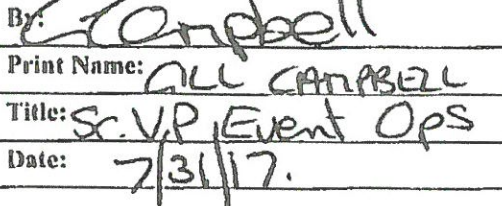 By: Campbell
Print Name: GILL CAMPBELL
Title: Sr. V.P, Event Ops
Date: 7/31/17.